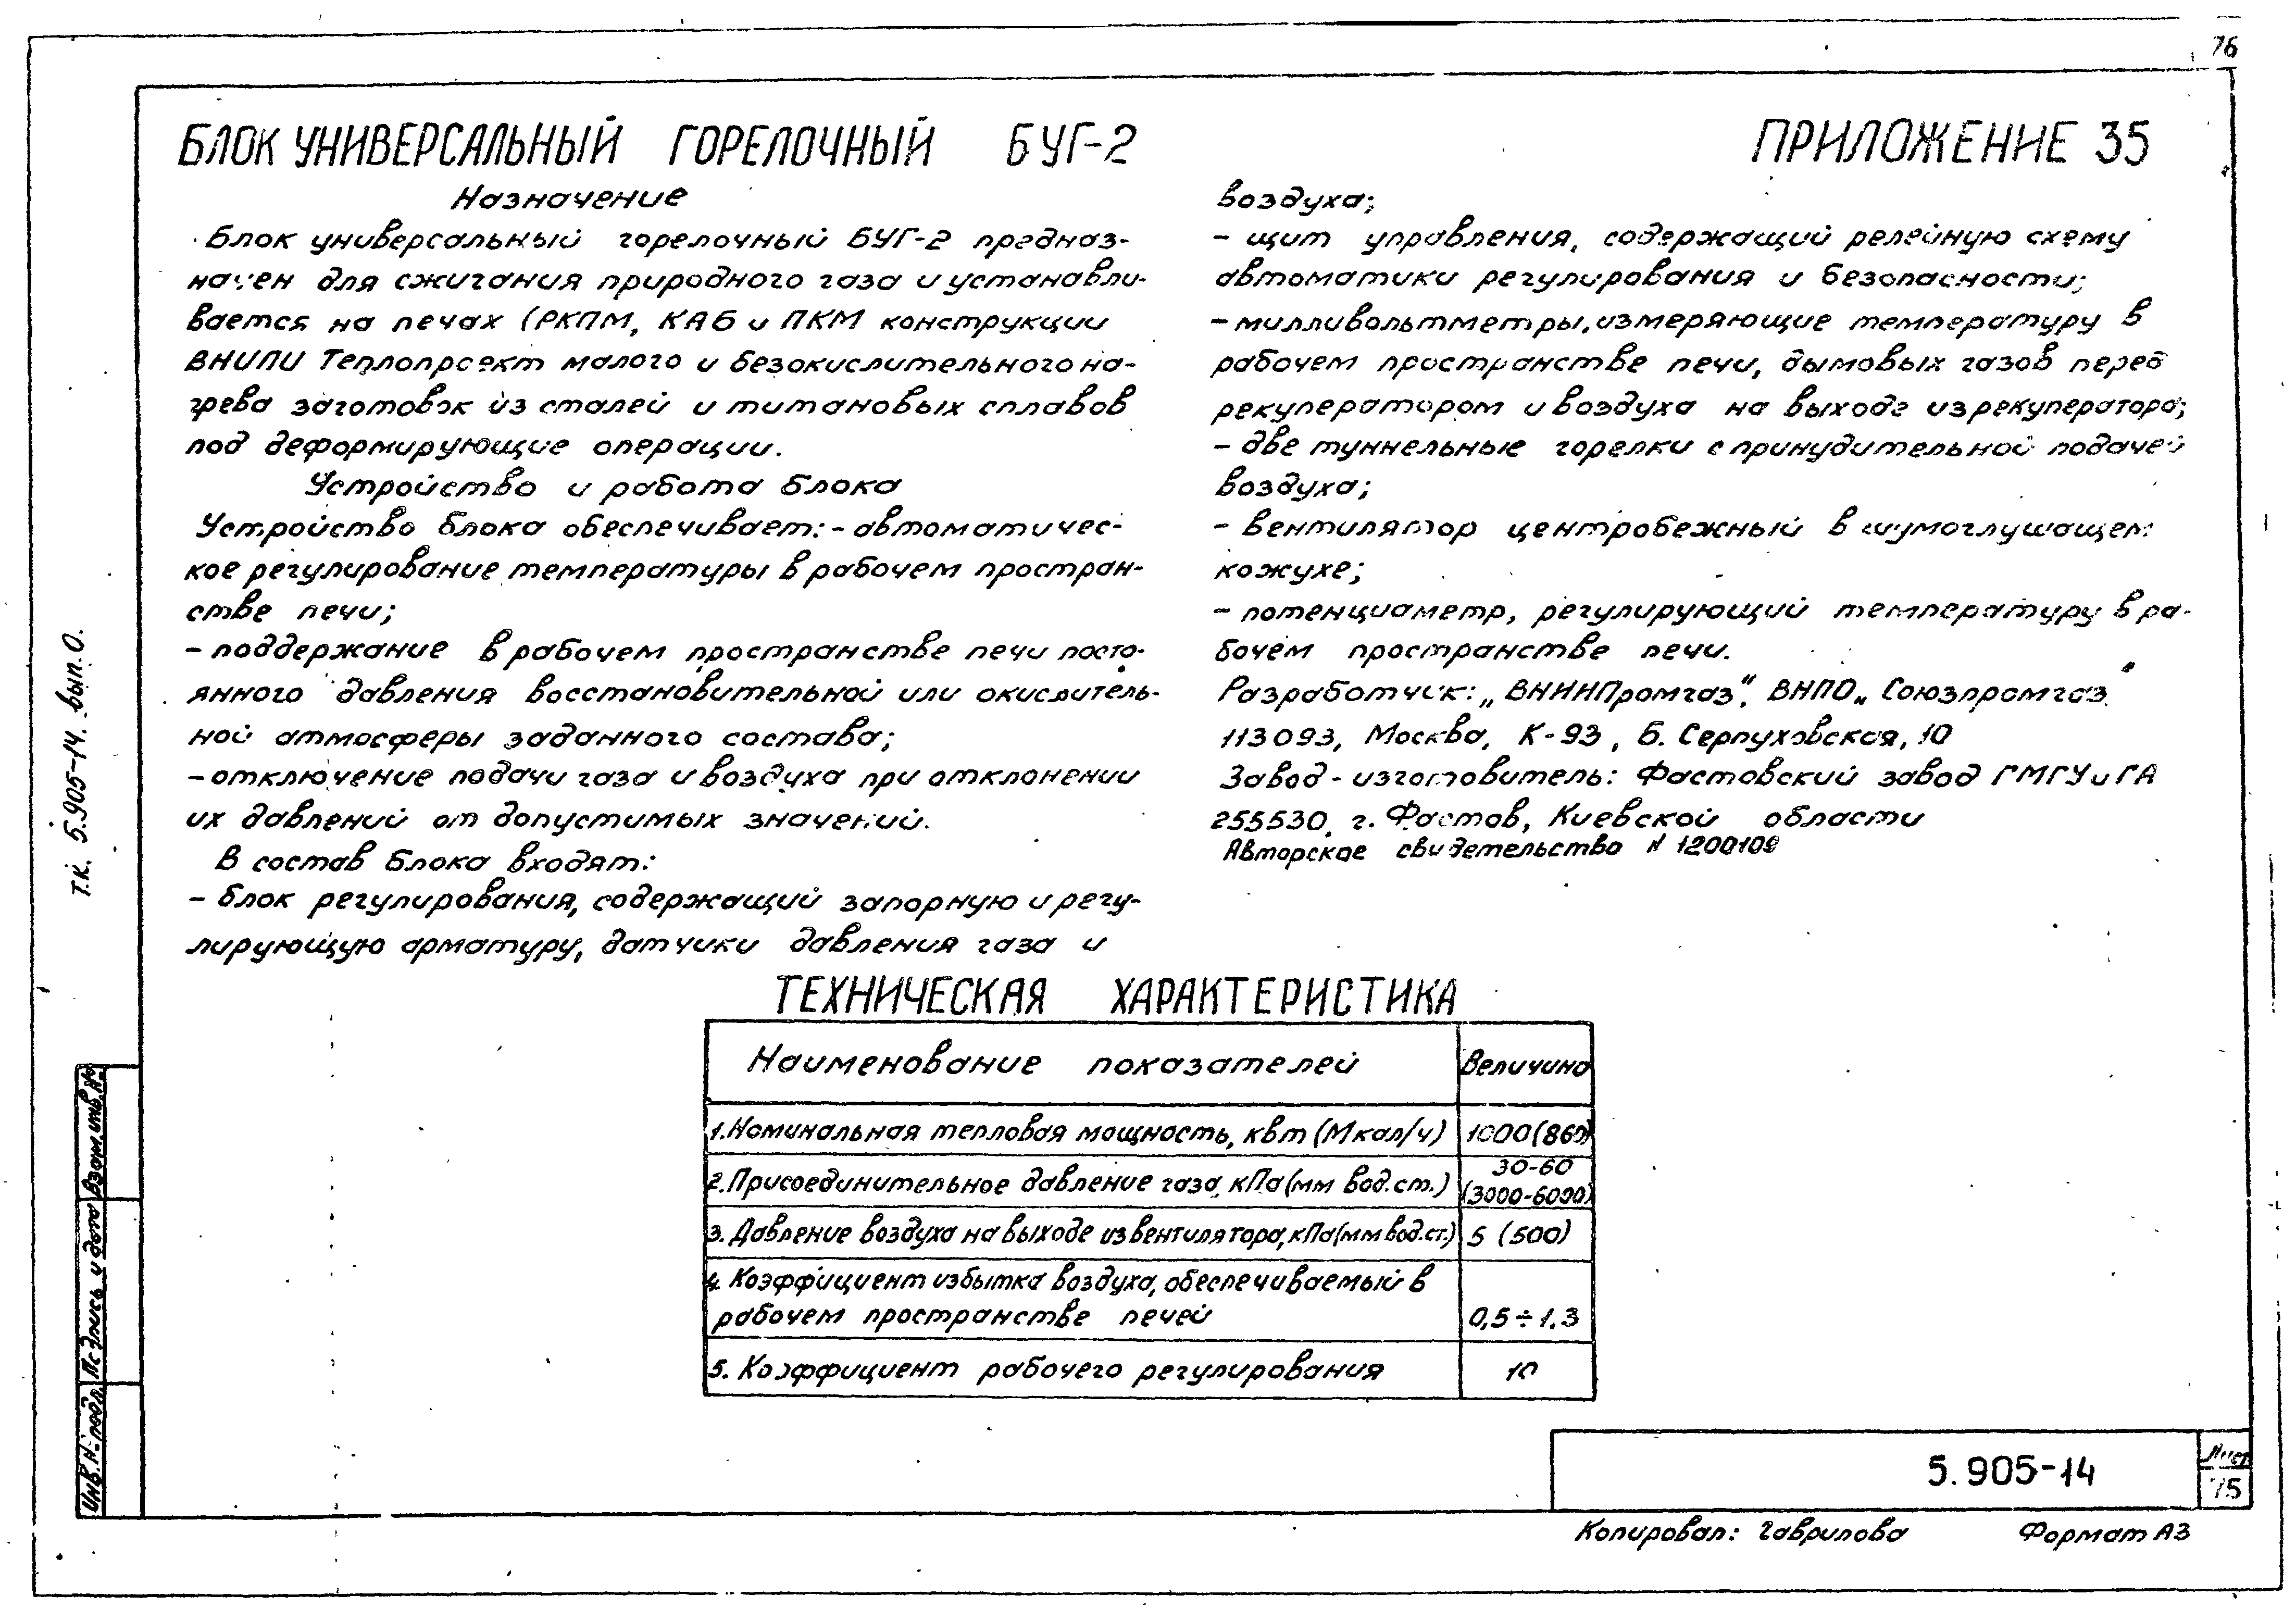 76
БЛОК УНИВЕРСАЛЬНЫЙ ГОРЕЛОЧНЫЙ БУГ-2
ПРИЛОЖЕНИЕ 35
Назначение
Блок универсальный горелочный БУГ-2 предназ-
начен для сжигания природного газа и устанавли-
вается на печах (РКПМ, КАБ и ПКМ конструкции
ВНИПИ Теплопроект малого и безокислительного на-
грева заготовок из сталей и титановых сплавов
под деформирующие операции.
Устройство и работа блока
Устройство блока обеспечивает: - автоматичес-
кое регулирование температуры в рабочем простран-
стве печи;
- поддержание в рабочем пространстве печи посто-
янного давления восстановительной или окислитель-
ной атмосферы заданного состава;
- отключение подачи газа и воздуха при отклонении
их давлений от допустимых значений.
В состав блока входят:
- блок регулирования, содержащий запорную и регу-
лирующую арматуру, датчики давления газа и
воздуха;
- щит управления, содержащий релейную схему
автоматики регулирования и безопасности;
- милливольтметры, измеряющие температуру в
рабочем пространстве печи, дымовых газов перед
рекуператором и воздуха на выходе из рекуператора;
- две туннельные горелки с принудительной подачей
воздуха;
- вентилятор центробежный в шумоглушащем
кожухе;
- потенциометр, регулирующий температуру в ра-
бочем пространстве печи.
Разработчик: „ВНИИПромгаз", ВНПО „Союзпромгаз"
113093, Москва, К-93, Б. Серпуховская, 10
Завод-изготовитель: Фастовский завод ГМГУ и ГА
255530, г. Фастов, Киевской области
Авторское свидетельство N 1200109
ТЕХНИЧЕСКАЯ ХАРАКТЕРИСТИКА
Наименование показателей Величина
1. Номинальная тепловая мощность, квт (Мкал/ч) 1000 (860)
2. Присоединительное давление газа, кПа (мм вод.ст.) 30-60
(3000-6000)
3. Давление воздуха на выходе из вентилятора, кПа (мм вод.ст.) 5 (500)
4. Коэффициент избытка воздуха, обеспечиваемый в
рабочем пространстве печей 0,5÷1.3
5. Коэффициент рабочего регулирования 10
Т.К. 5.905-14. вып. 0.
Взам. инв. №
Подпись и дата
Инв. N подл.
5.905-14
Лист
75
Копировал: Гаврилова
Формат А3